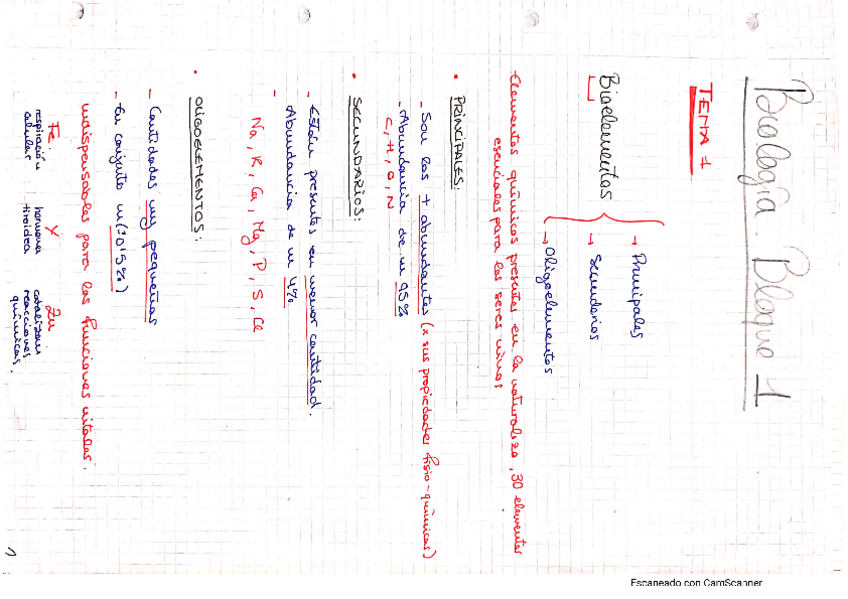 Biología. Bloque 1
TEMA 1
Bioelementos
→ Principales
→ Secundarios
→ Oligoelementos
Elementos químicos presentes en la naturaleza, 30 elementos
esenciales para los seres vivos
• PRINCIPALES:
- Son los + abundantes (x sus propiedades físio-químicas)
- Abundancia de un 95%
C, H, O, N
• SECUNDARIOS:
- Están presentes en menor cantidad.
- Abundancia de un 4%
Na, K, Ca, Mg, P, S, Cl
• OLIGOELEMENTOS:
- Cantidades muy pequeñas
- En conjunto un (0'5%)
indispensables para las funciones vitales.
Fe: Y Zn
respiración hormona catalizan
celular tiroidea reacciones
químicas.
1
Escaneado con CamScanner